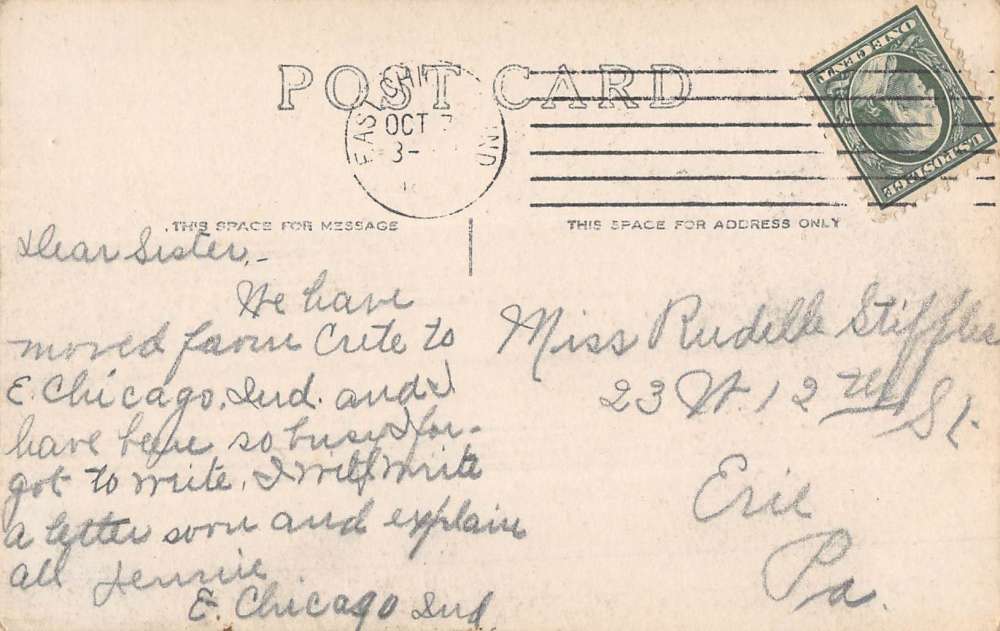 POST CARD
EAST CHI IND
OCT
3-
ONE CENT
U.S. POSTAGE
THIS SPACE FOR MESSAGE
THIS SPACE FOR ADDRESS ONLY
Dear Sister,-
We have
moved from Crete to
E. Chicago, Ind. and I
have been so busy I for-
got to write. I will write
a letter soon and explain
all Jennie
E. Chicago Ind
Miss Rudelle Stiffler
23 W 12th St.
Erie
Pa.